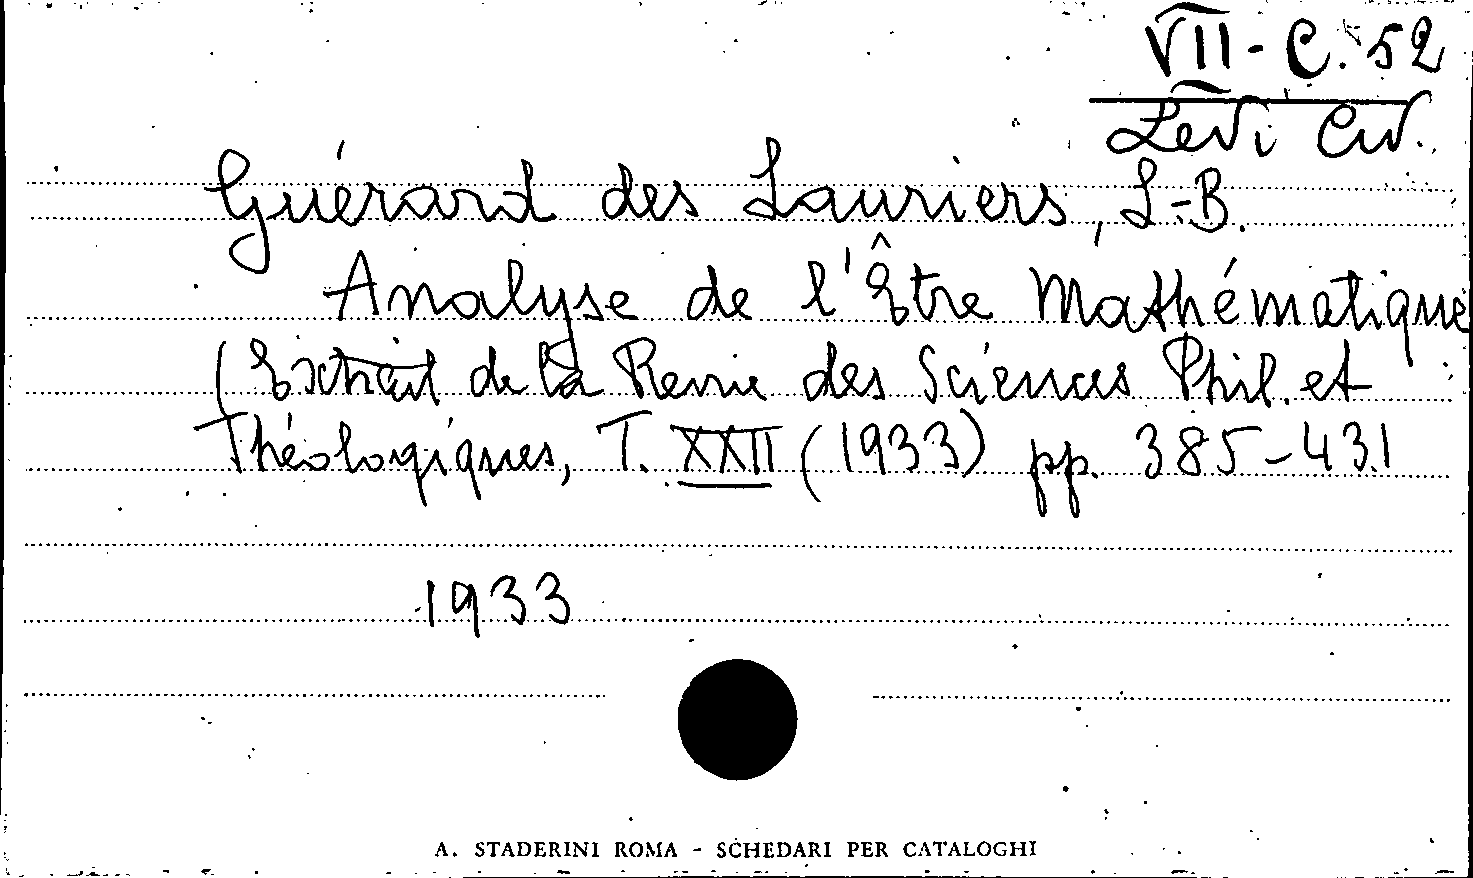 VII - C. 52
Levi Civ.
Guérard des Lauriers, L-B.
Analyse de l'Être Mathématique
(Extrait de la Revue des Sciences Phil. et
Théologiques, T. XXII (1933) pp. 385-431
1933
A. STADERINI ROMA - SCHEDARI PER CATALOGHI